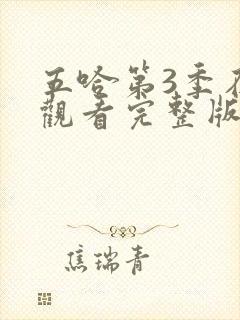 五哈第3季
觀看完整版
焦瑞青